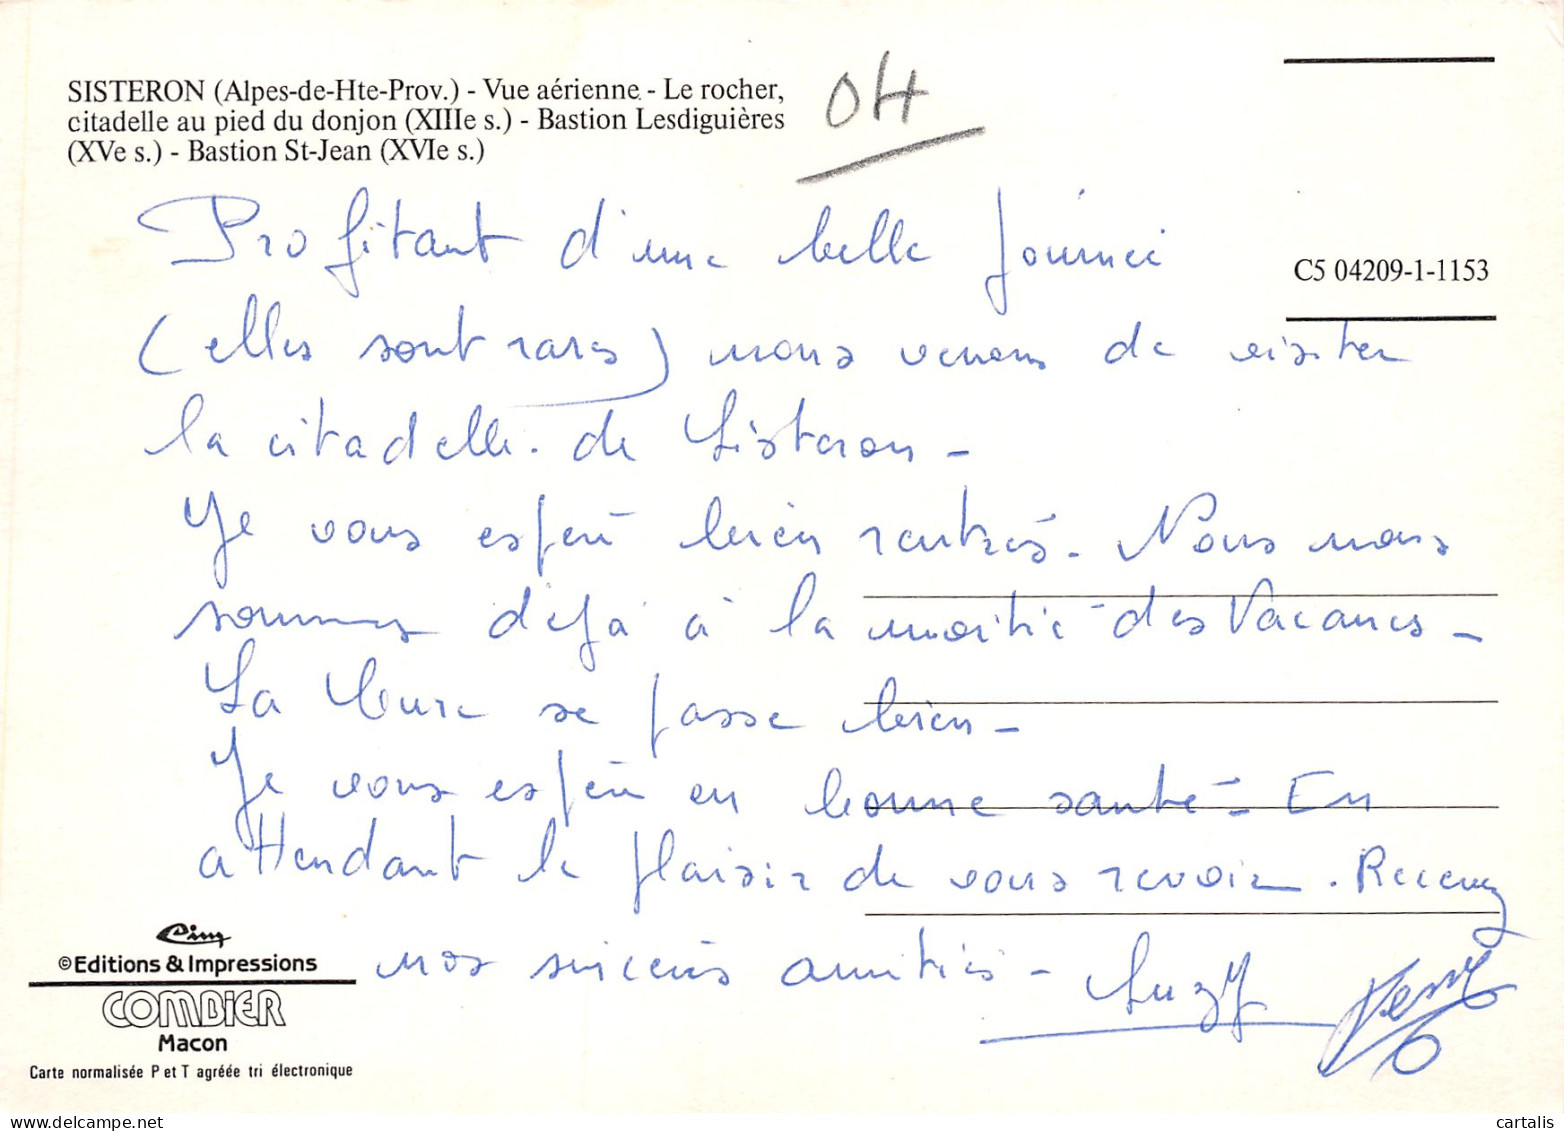 SISTERON (Alpes-de-Hte-Prov.) - Vue aérienne - Le rocher,
citadelle au pied du donjon (XIIIe s.) - Bastion Lesdiguières
(XVe s.) - Bastion St-Jean (XVIe s.)
04
C5 04209-1-1153
Profitant d'une belle journée
(elles sont rares) nous venons de visiter
la citadelle de Sisteron -
Je vous espère bien rentrés. Nous nous
sommes déjà à la moitié des Vacances -
La cure se passe bien -
Je vous espère en bonne santé - En
attendant le plaisir de vous revoir. Recevez
nos sincères amitiés - Suzy
Cim
©Editions & Impressions
COMBIER
Macon
Carte normalisée P et T agréée tri électronique
cartalis
delcampe.net